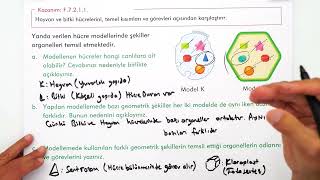 Kazanım: F.7.2.1.1.
Hayvan ve bitki hücrelerini, temel kısımları ve görevleri açısından karşılaştırır.
Yanda verilen hücre modellerinde şekiller
organelleri temsil etmektedir.
a. Modellenen hücreler hangi canlılara ait
olabilir? Cevabınızı nedeniyle birlikte
açıklayınız.
K: Hayvan (Yuvarlak yapıda)
L: Bitki (Köşeli yapıda) Hücre Duvarı var
Model K
b. Yapılan modellemede bazı geometrik şekiller her iki modelde de aynı iken
farklıdır. Bunun nedenini açıklayınız.
Çünkü Bitki ve Hayvan hücrelerinde bazı organeller ortaktır.
farklıdır
Modellemede kullanılan farklı geometrik şekillerin temsil ettiği organellerin adlarını
ve görevlerini yazınız.
: Sentrozom (Hücre bölünmesinde görev alır)
Kloroplast
(Fotosentez)